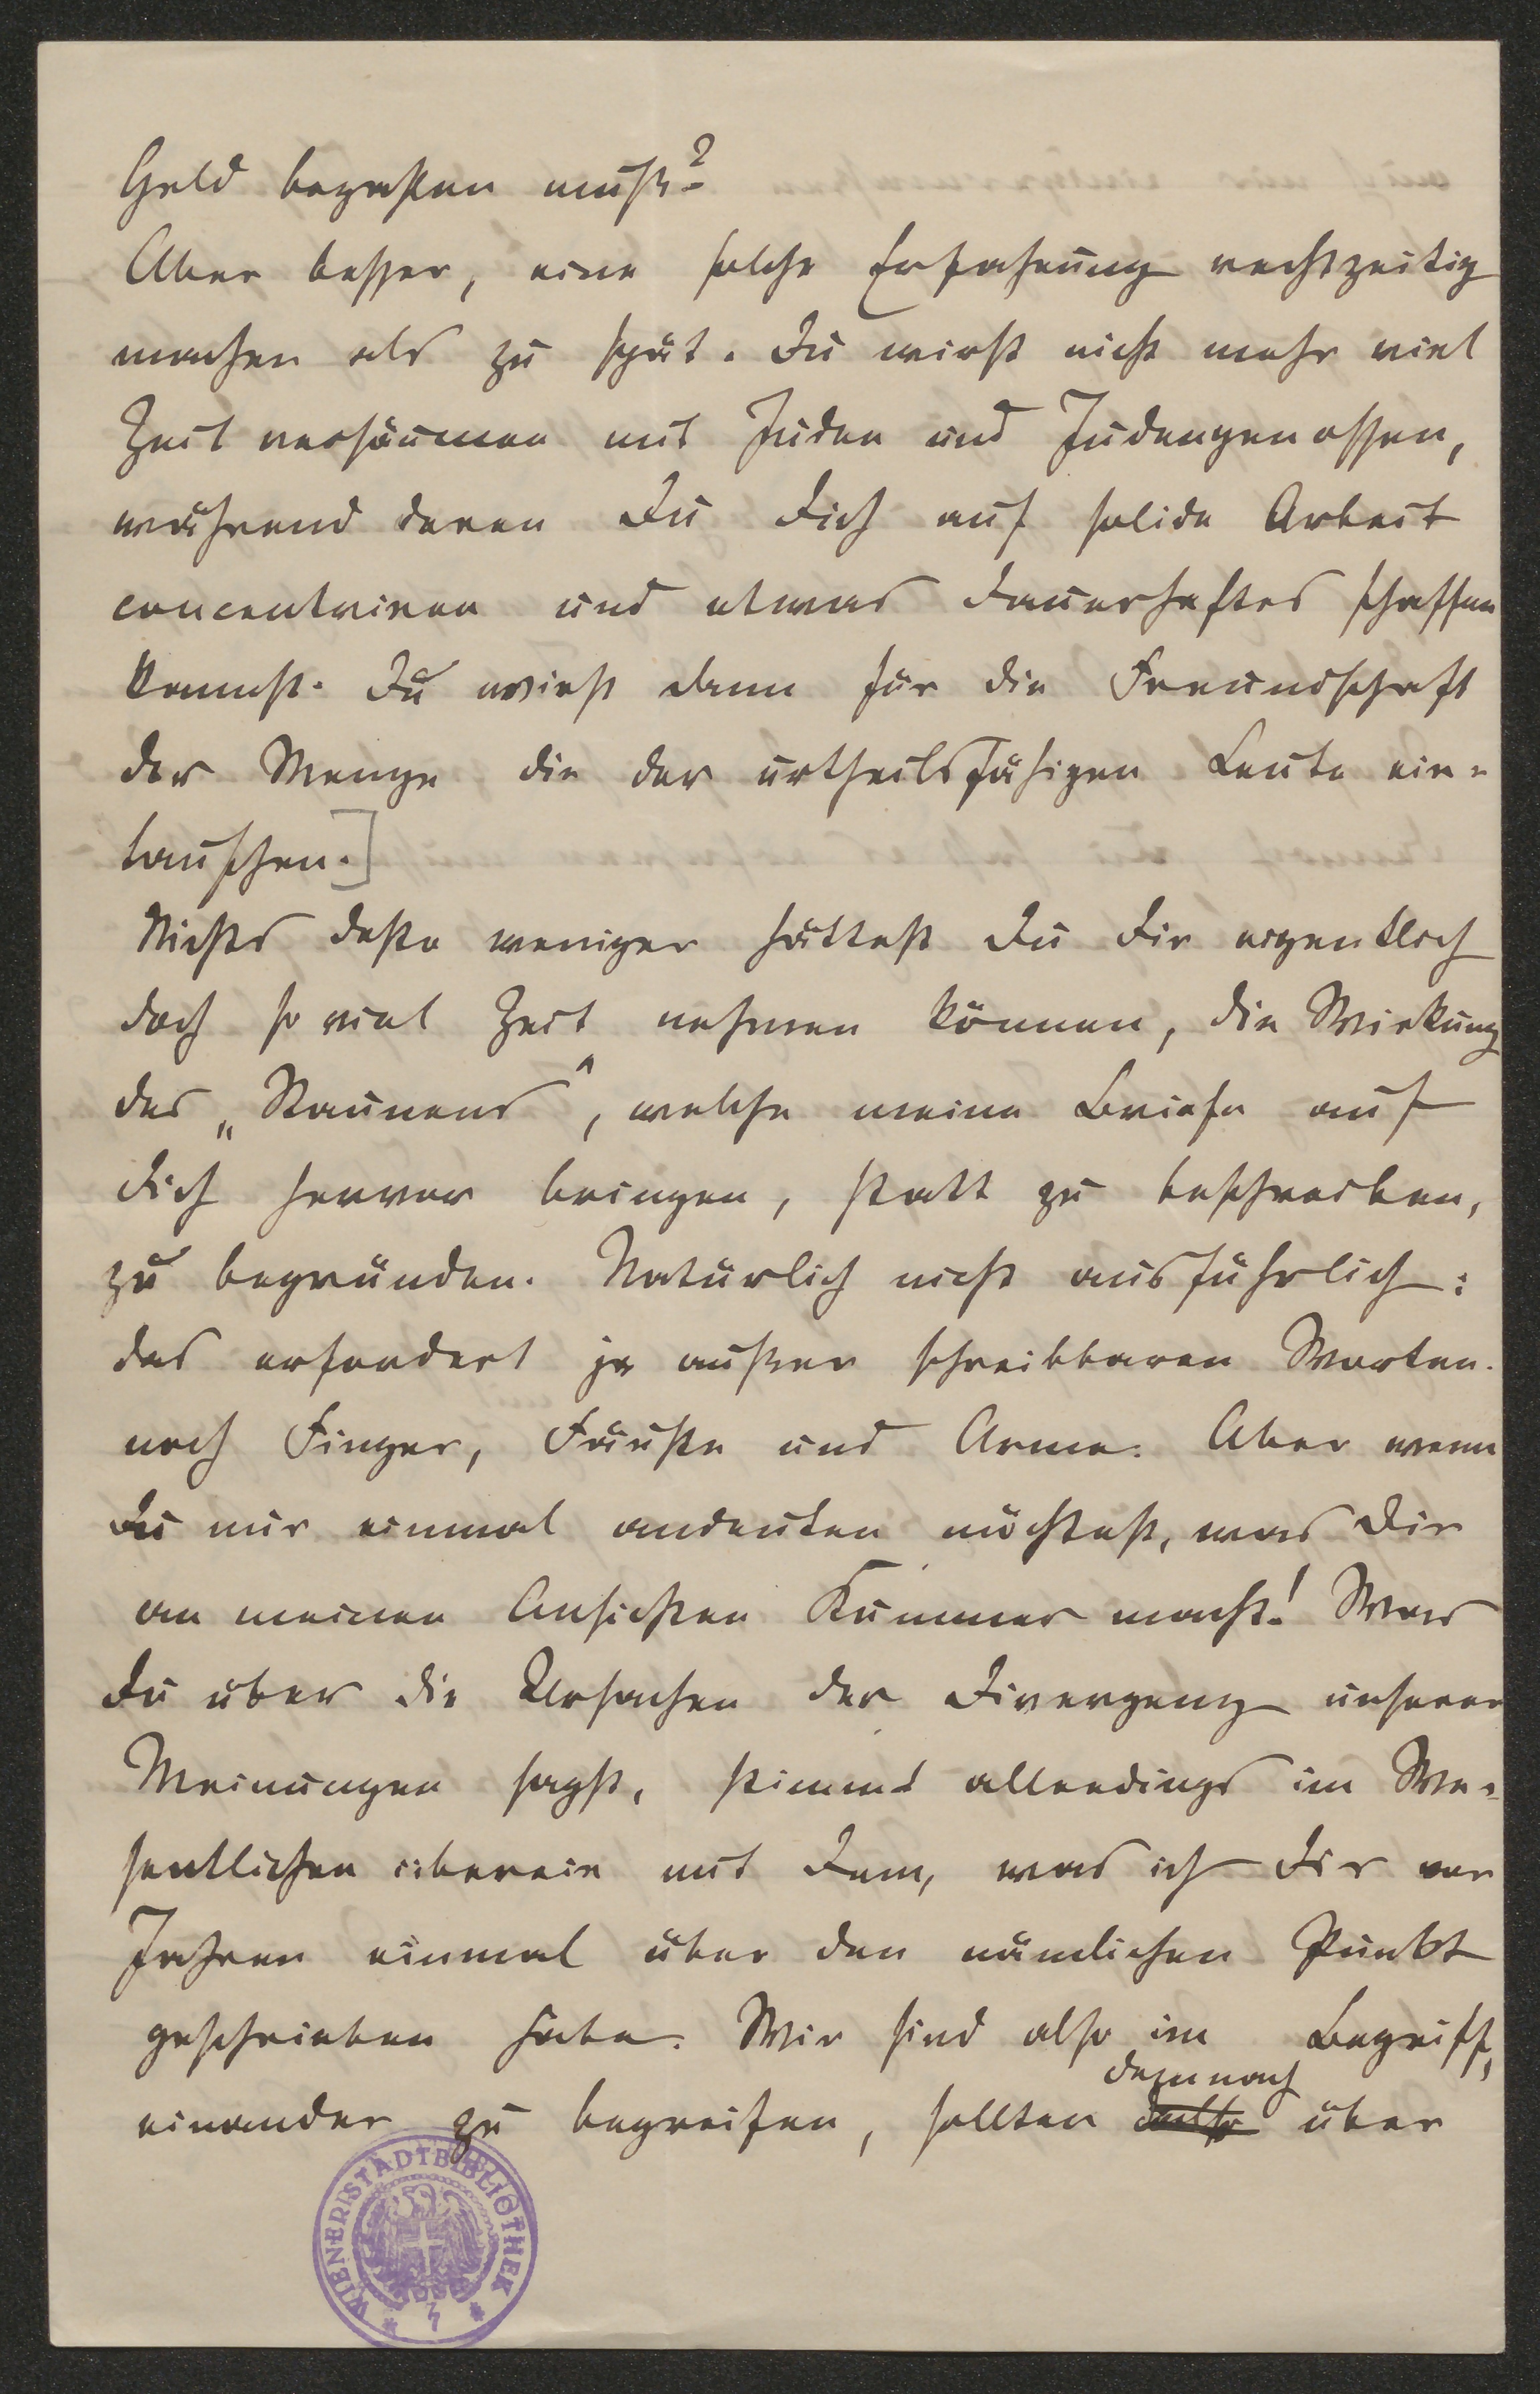 Geld bezahlen muß?
Aber besser, eine solche Erfahrung rechtzeitig
machen als zu spät. Du wirst nicht mehr viel
Zeit versäumen mit Juden und Judengenossen,
während deren Du Dich auf solide Arbeit
concentriren und etwas Dauerhaftes schaffen
kannst. Du wirst dann für die Freundschaft
der Menge die der urtheilsfähigen Leute ein-
tauschen.]
Nichts desto weniger hättest Du Dir eigentlich
doch so viel Zeit nehmen können, die Wirkung
des „Staunens“, welche meine Briefe auf
Dich hervor bringen, statt zu beschreiben,
zu begründen. Natürlich nicht ausführlich:
das erfordert ja außer schreibbaren Worten
noch Finger, Fäuste und Arme. Aber wenn
Du nur einmal andeuten möchtest, was Dir
an meinen Ansichten Kummer macht! Was
Du über die Ursachen der Divergenz unserer
Meinungen sagst, stimmt allerdings im We-
sentlichen überein mit Dem, was ich Dir vor
Jahren einmal über den nämlichen Punkt
geschrieben habe. Wir sind also im Begriff,
demnach
einander zu begreifen, sollten über
WIENER STADTBIBLIOTHEK